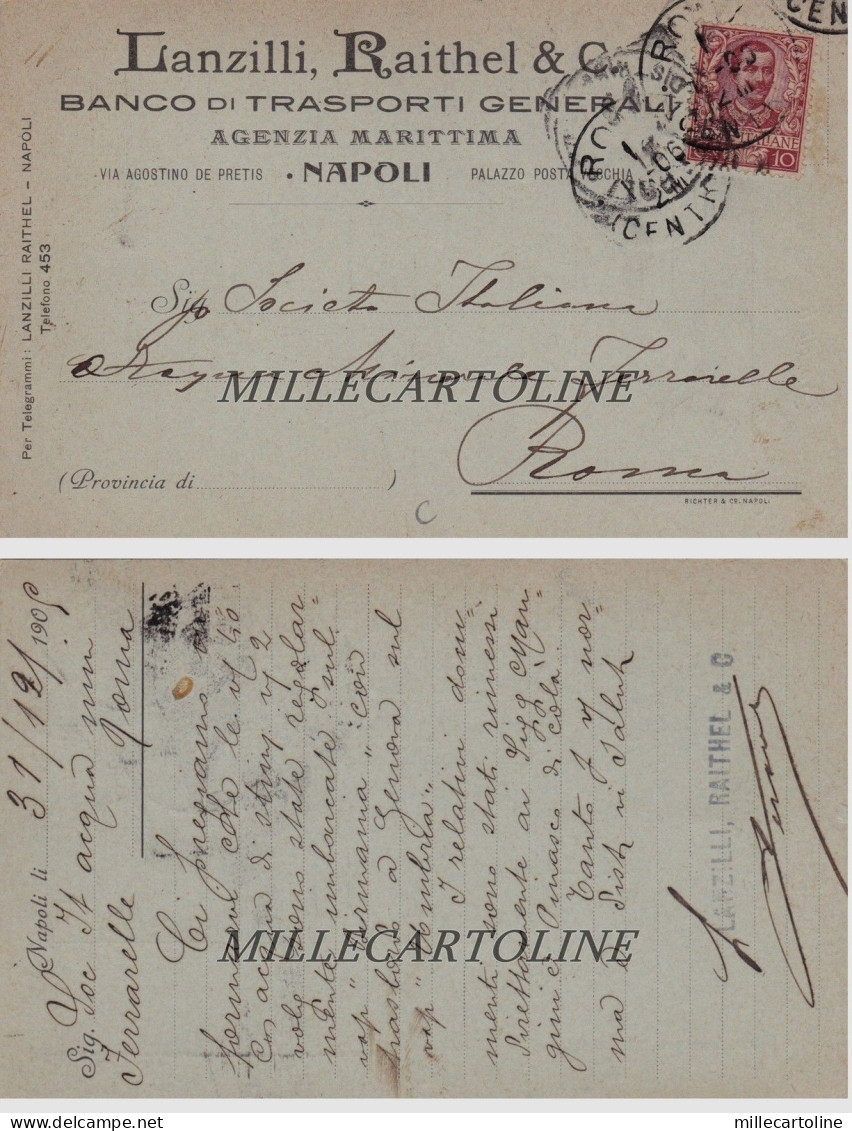 Lanzilli, Raithel & C.
BANCO DI TRASPORTI GENERALI
AGENZIA MARITTIMA
VIA AGOSTINO DE PRETIS • NAPOLI PALAZZO POSTA VECCHIA
Per Telegrammi: LANZILLI RAITHEL - NAPOLI
Telefono 453
ROMA
CENTR
10
Società Italiana
Acqua Minerale Ferrarelle
Roma
(Provincia di )
RICHTER & CO. NAPOLI
C
MILLECARTOLINE
Napoli li 31/12/1905
Sig. Soc It acqua min
Ferrarelle Roma
Ci pregiamo
formarvi che le 50
Cas acqua di
sono state regolar-
mente imbarcate sul
vap "Germania" con
trasbordo a Genova sul
vap "Umbria"
I relativi docu-
menti sono stati rimessi
direttamente ai Sigg Man-
gini e Pinasco di colà
Tanto p v/ nor-
ma e vi
LANZILLI, RAITHEL & C
MILLECARTOLINE
delcampe.net
millecartoline